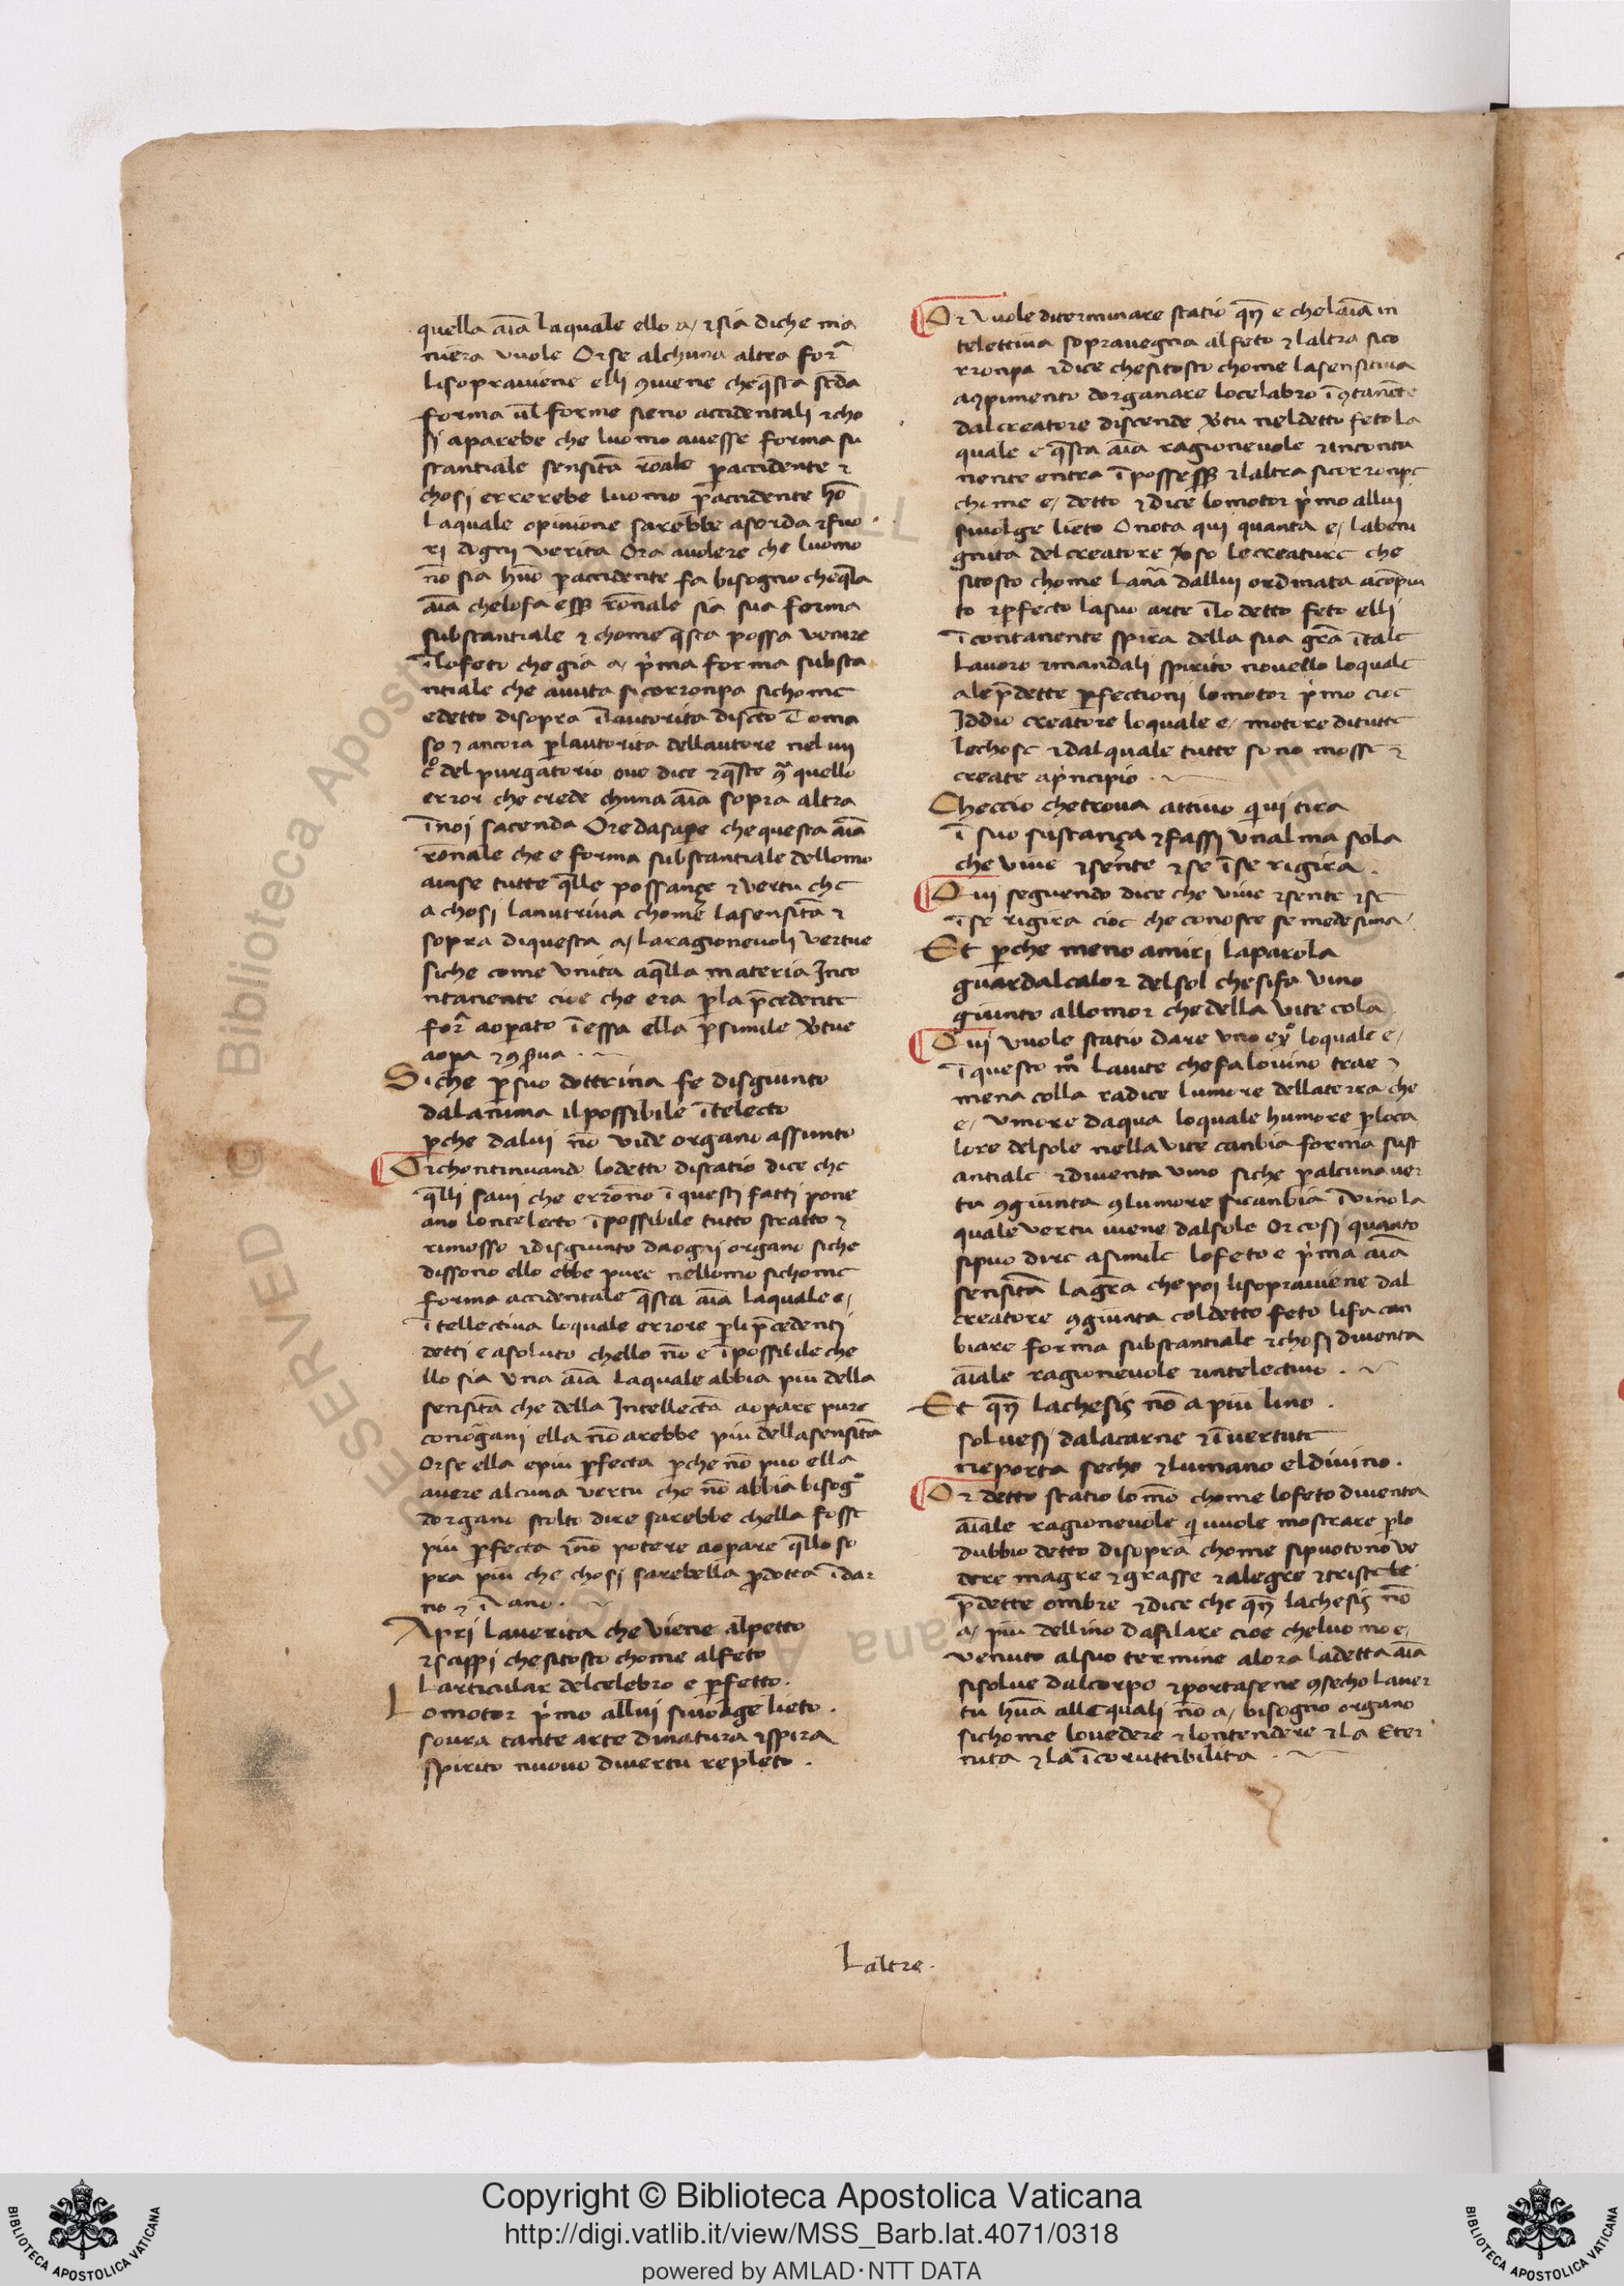 quella aīa laquale ello a/ ⁊ sia diche ma
niera vuole Orse alchuna altra forᵃ
lisopraviene elli ꝯviene cheq̄sta scđa
forma ūl forme sieno accidentali ⁊ cho
si aparebe che luomo avesse forma su
stantiale sensitā rōale ꝑaccidente ⁊
chosi errerebe luomo p̄accidente hō
laquale opinione sarebbe asorda ⁊ fuo
ri dogni verita Ora avolere che luomo
nō sia huō ꝑaccidente fa bisogno cheq̄lla
aīa chelofa esse rōnale sia sua forma
substantiale ⁊ chome q̄sta possa venire
īlofeto che gia a/ pͥma forma substa
ntiale che avuta sicorronpa sichome
edetto disopra īlautorita discō toma
so ⁊ ancora ꝑlautorita dellautore nel iiij
cͦ del purgatorio ove dice ⁊ q̄sto ꝯͣ quello
error che crede chuna aīa sopra altra
īnoi sacenda Ore dasape che questa aīa
rōnale che e forma substantiale dellomo
avise tutte q̄lle possanze ⁊ vertu che
a chosi lanutriva chome lasensitā ⁊
sopra diquesta a/ laragionevoli vertue
siche come vnita aq̄lla materia Inco
ntanente cioe che era ꝑla p̄cedente
forᵃ aoperato īessa ella ꝑsimile vtue
aopa ⁊ ꝯs̄va .
Siche ꝑsuo dottrina fe disgiunto
dalanima ilpossibile ītelecto
ꝑche dalui nō vide organo assunto
Orchontinuando lodetto distatio dice che
q̄lli savi che errōno ī questi fatti pone
ano lontelecto īpossibile tutto stratto ⁊
rimosso ⁊ disgiunto daogni organo siche
dissono ello ebbe pure nellomo sichome
forma accidentale q̄sta aīa laquale e/
ītellectiva loquale errore ꝑli p̄cedenti
detti e asoluto chello nō e īpossibile che
llo sia vna aīa laquale abbia piu della
sensitā che della Intellectā aoperare pure
conorgani ella nō arebbe piu dellasensitā
Orse ella epiu ꝑfecta ꝑche nō puo ella
avere alcuna vertu che nō abbia bisogᵒ
dorgano stolto dire sarebbe chella fosse
piu ꝑfecta ⁊ nō potere aoperare q̄llo so
pra piu che chosi sarebella ꝑdotta īdar
no ⁊ ī vano .
Apri laverita che viene alpetto
⁊ sappi chesitosto chome alfeto
larticular delcelebro e ꝑfetto.
Lomotor pͥmo allui sivolge lieto.
sovra tante arte dinatura ⁊ spira
spirito nuovo divertu repleto .
Or vuole diterminare statio qn̄ e chelaīa in
telettiva sopravegna alfeto ⁊ laltra sico
rronpa ⁊ dice chesitosto chome lasensitiva
aꝯpimento dorganare locelabro īꝯtanēte
dalcreatore discende vtu neldetto feto la
quale e q̄sta aīa ragionevole ⁊ inconta
nente entra īpossessō ⁊ laltra sicorronpe
chome e/ detto ⁊ dice lomotor pͥmo allui
sivolge lieto O nota qui quanta e/ labeni
gnita del creatore v̄so le creature che
sitosto chome lanᵃ dallui ordinata acōpiu
to ⁊ ꝑfecto lasuo arte īlo detto feto elli
īcontanente spira della sua grā ītale
lavoro ⁊ mandali spirito novello loquale
ale p̄dette ꝑfectioni lomotor pͥmo cioe
Iddio creatore loquale e/ motore ditutte
lechose ⁊ dalquale tutte sono mosse ⁊
create apͥncipio .
Checcio chetrova attivo qui tira
ī suo sustanza ⁊ fassi vnalma sola
che vive ⁊ sente ⁊ se īse rigira .
Qui seguendo dice che vive ⁊ sente ⁊ se
īse rigira cioe che conosce semedesima.
Et ꝑche meno amiri laparola
guardalcalor delsol chesifa vino
giunto allomor chedella vite cola
Qui vuole statio dare vno exͦ loquale e/
ī questo mͦ lavite chefalovino trae ⁊
mena colla radice lumore dellaterra che
e/ vmore daqua loquale humore ꝑloca
lore delsole nella vite canbia forma sust
antiale ⁊ diventa vino siche ꝑalcuna ver
tu ꝯgiunta ꝯlumore sicanbia ī vino la
quale vertu viene dalsole Or cosi quanto
sipuo dire asimile lofeto e pͥma aīa
sensitā lagrā che poi lisopraviene dal
creatore ꝯgiunta coldetto feto lifa can
biare forma substantiale ⁊ chosi diventa
aīale ragionevole ⁊ intelectivo .
Et qn̄ lachesis nō a piu lino .
solvesi dalacarne ⁊ īvertute
neporta secho ⁊ lumano eldivino.
Or detto statio lo mō chome lofeto diventa
aīale ragionevole q̄ vuole mostrare ꝑlo
dubbio detto disopra chome sipuotono ve
dere magre ⁊ grasse ⁊ alegre ⁊ triste le
p̄dette ombre ⁊ dice che qn̄ lachesis nō
a/ piu dellino dafilare cioe cheluomo e/
venuto alsuo termine alora ladetta aīa
sisolve dalcorpo ⁊ portasene ꝯsecho laver
tu huā alle quali nō a/ bisogno organo
sichome lovedere ⁊ lontendere ⁊ la Eter
nita ⁊ la īcoruttibilita .
Laltre.
Copyright © Biblioteca Apostolica Vaticana
http://digi.vatlib.it/view/MSS_Barb.lat.4071/0318
powered by AMLAD·NTT DATA